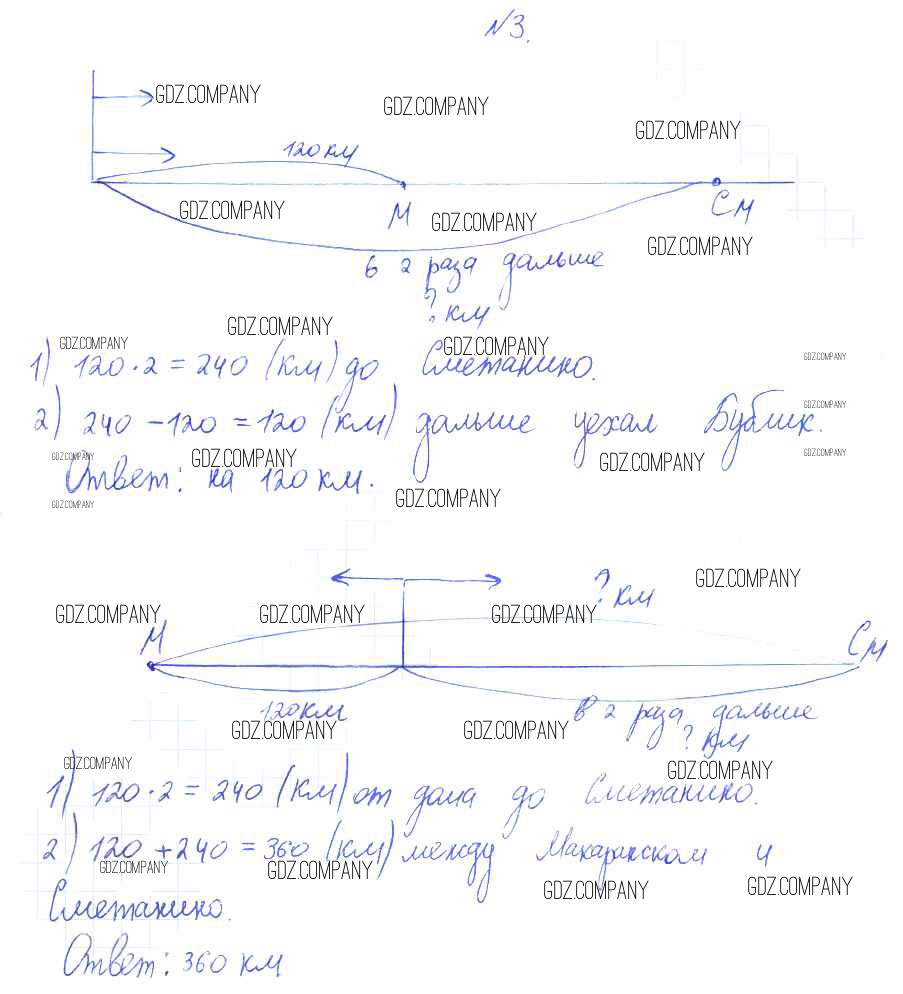 №3.
GDZ.COMPANY
GDZ.COMPANY
GDZ.COMPANY
120 км
GDZ.COMPANY
М
GDZ.COMPANY
См
GDZ.COMPANY
в 2 раза дальше
? км
GDZ.COMPANY
GDZ.COMPANY
GDZ.COMPANY
GDZ.COMPANY
1) 120·2=240 (км) до Сметанино.
GDZ.COMPANY
2) 240-120=120 (км) дальше уехал Бублик.
GDZ.COMPANY
GDZ.COMPANY
GDZ.COMPANY
GDZ.COMPANY
Ответ: на 120 км.
GDZ.COMPANY
GDZ.COMPANY
GDZ.COMPANY
? км
GDZ.COMPANY
GDZ.COMPANY
GDZ.COMPANY
М
См
120 км
в 2 раза дальше
GDZ.COMPANY
GDZ.COMPANY
? км
GDZ.COMPANY
GDZ.COMPANY
1) 120·2=240 (км) от дома до Сметанино.
2) 120+240=360 (км) между Макаранском и
GDZ.COMPANY
GDZ.COMPANY
GDZ.COMPANY
GDZ.COMPANY
Сметанино.
Ответ: 360 км